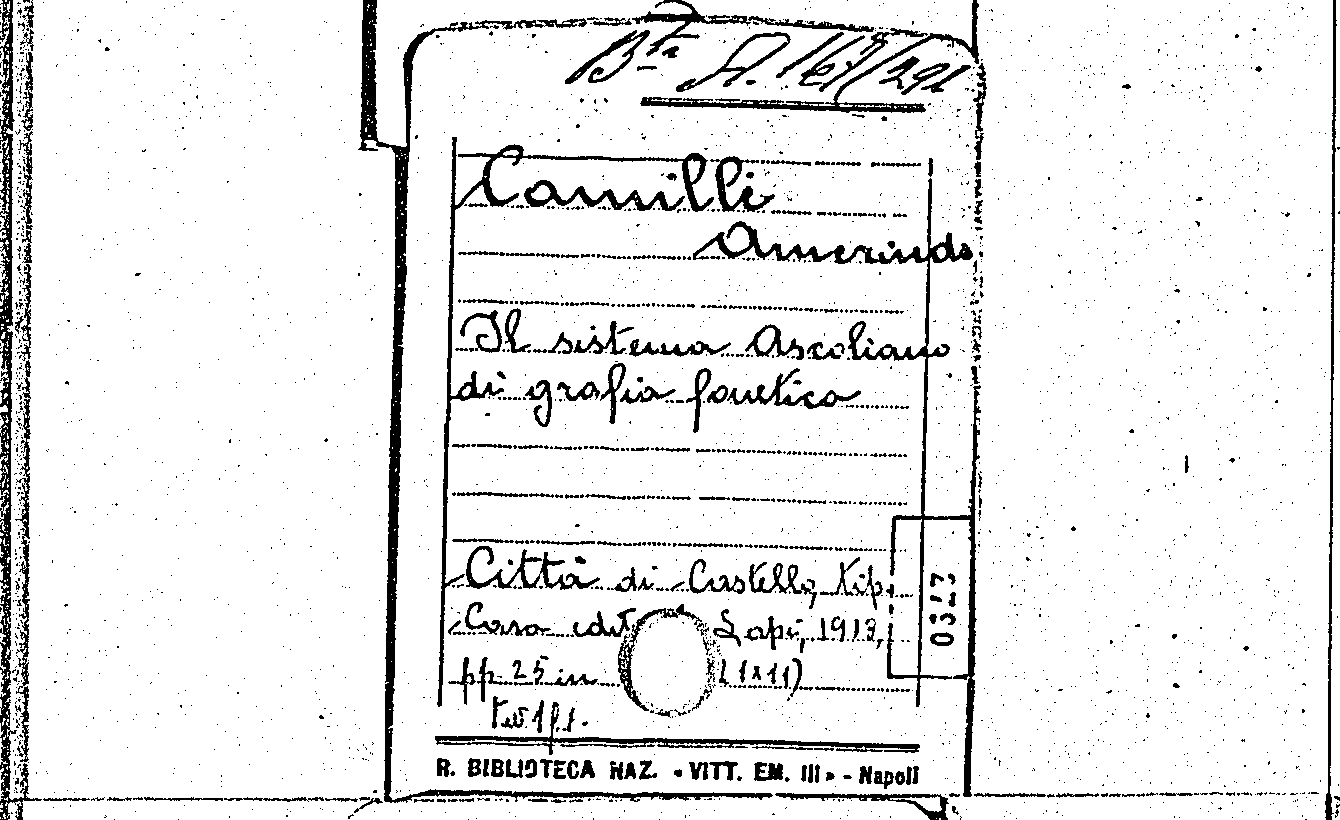 Bta A. 167/291
Camilli
Amerindo
Il sistema Ascoliano
di grafia fonetica
Città di Castello, tip.
Casa edit Lapi, 1913,
pp 25 in (1x11)
0327
R. BIBLIOTECA NAZ. « VITT. EM. III » - Napoli